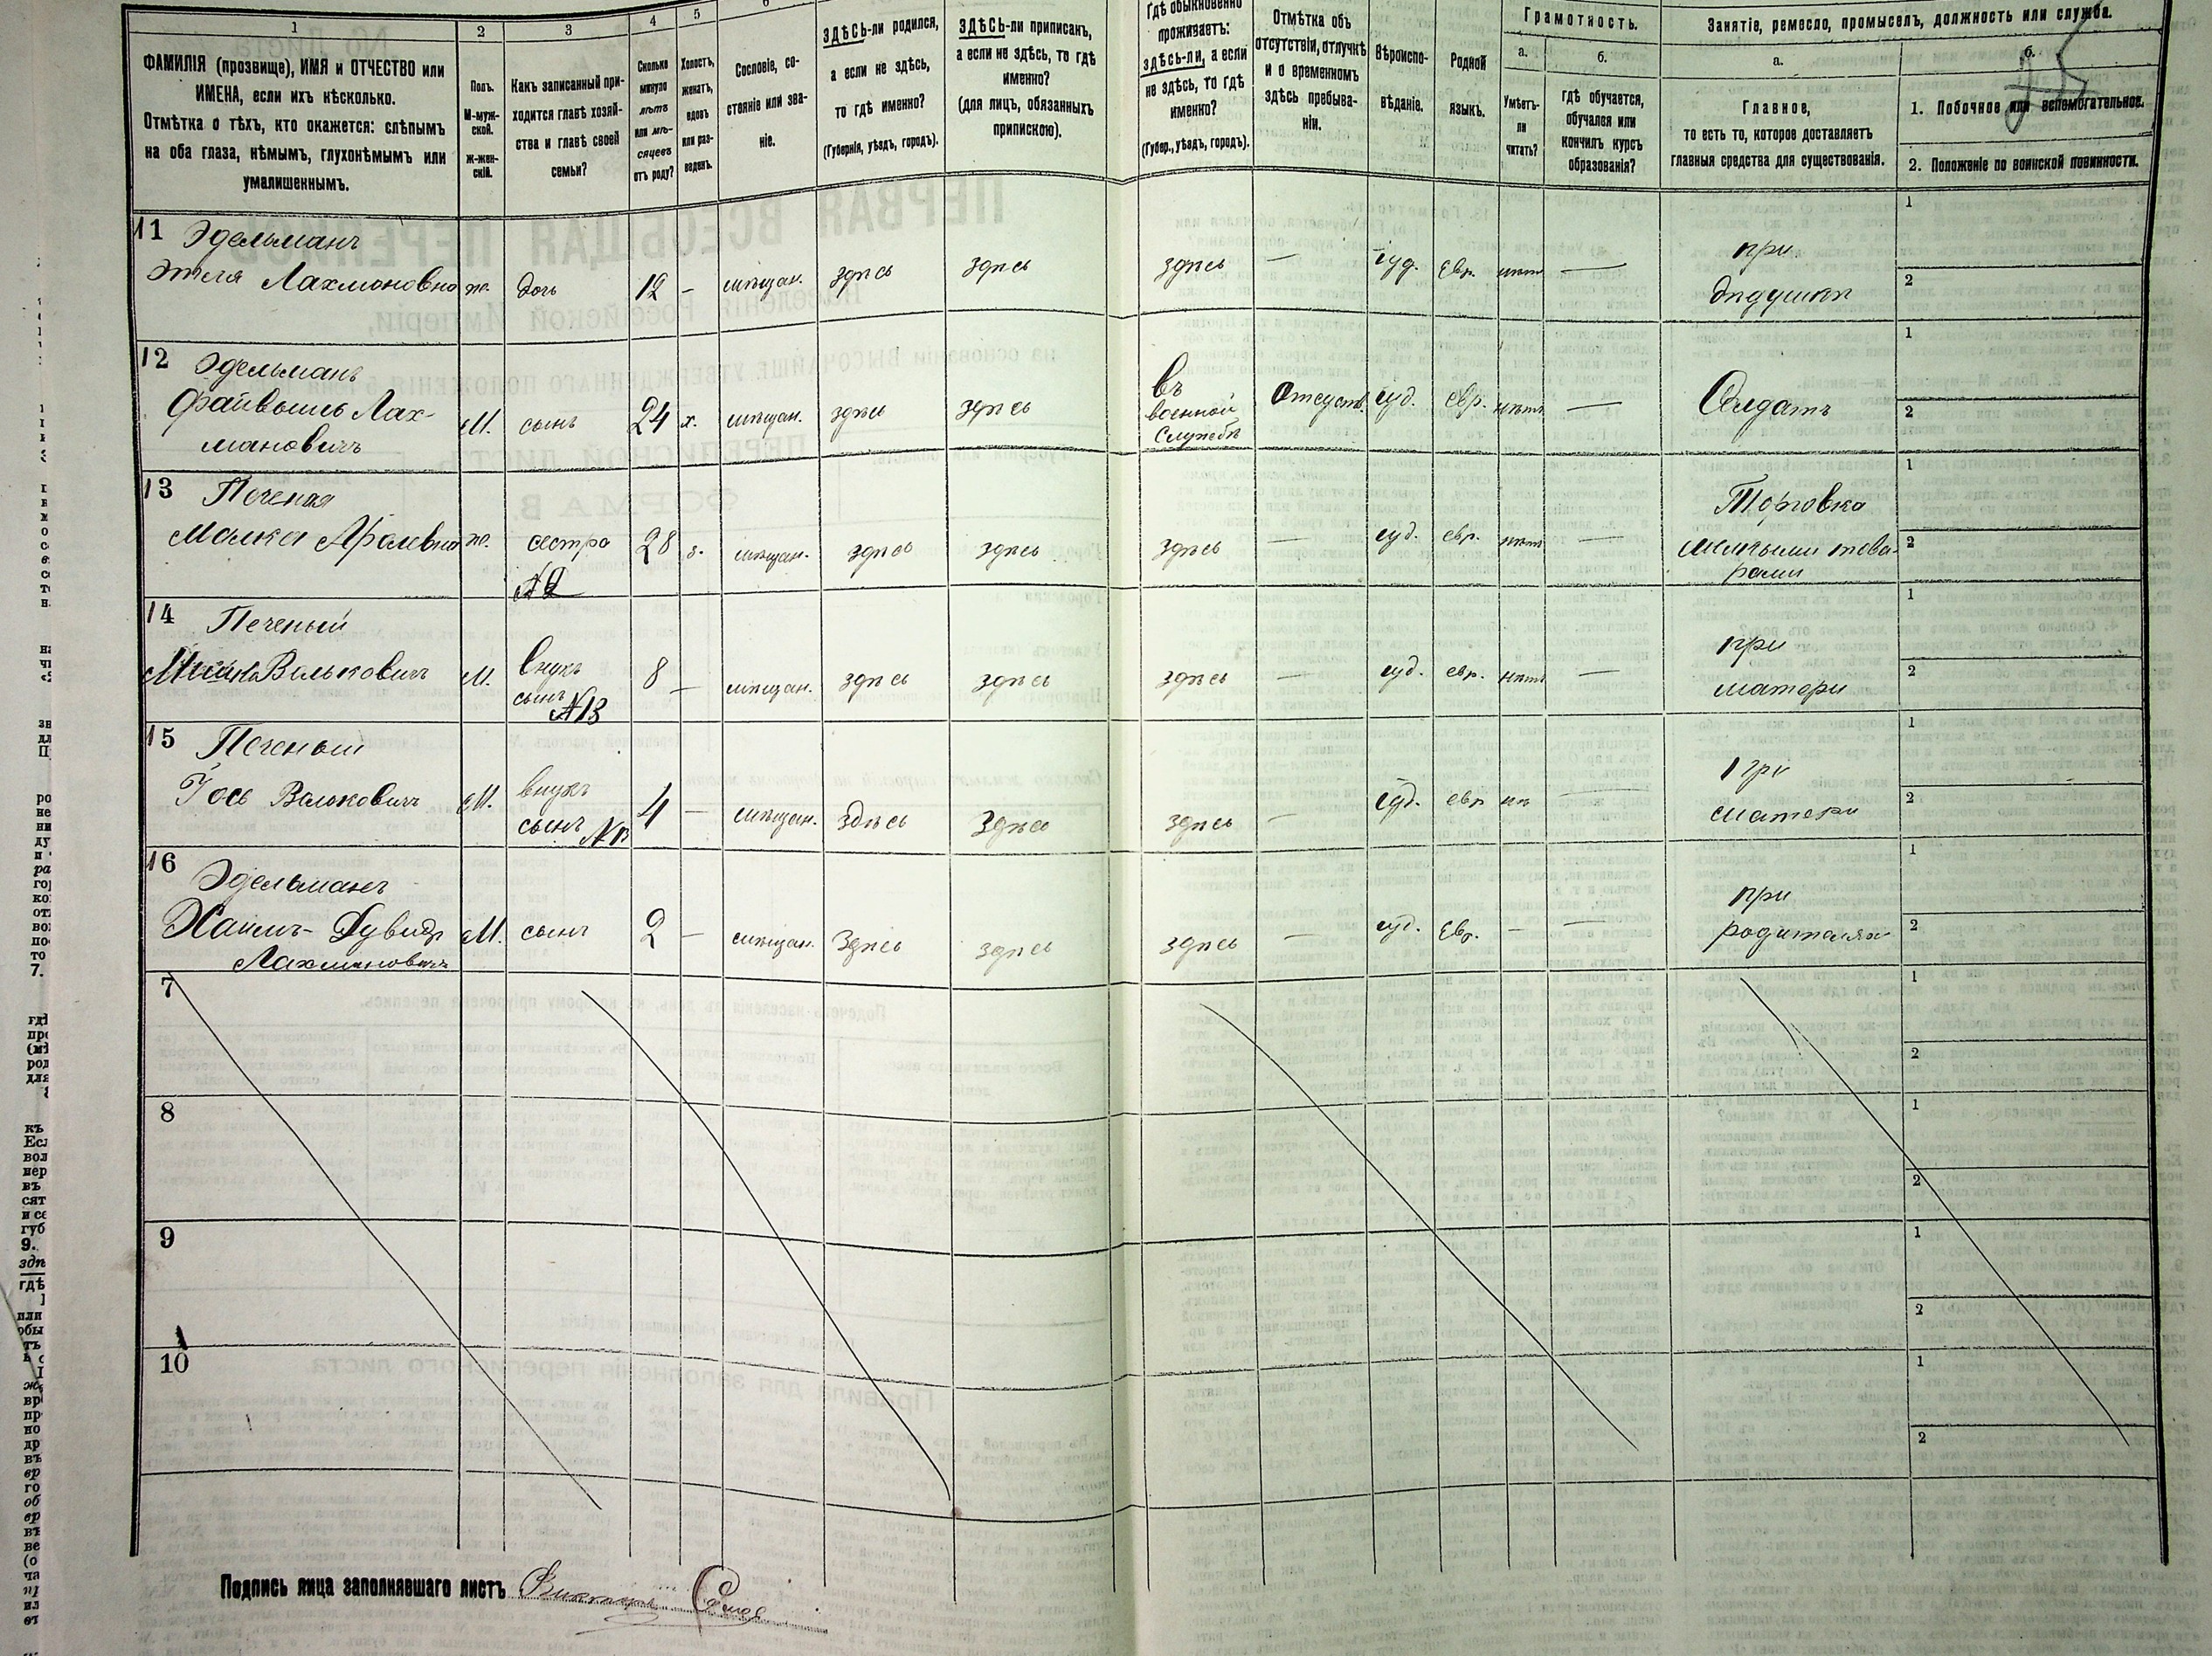 1
2
3
4
5
6
ФАМИЛІЯ (прозвище), ИМЯ и ОТЧЕСТВО или
ИМЕНА, если ихъ нѣсколько.
Отмѣтка о тѣхъ, кто окажется: слѣпымъ
на оба глаза, нѣмымъ, глухонѣмымъ или
умалишеннымъ.
Полъ.
М-муж-
ской.
Ж-жен-
скій.
Какъ записанный при-
ходится главѣ хозяй-
ства и главѣ своей
семьи?
Сколько
минуло
лѣтъ
или мѣ-
сяцевъ
отъ роду?
Холостъ,
женатъ,
вдовъ
или раз-
веденъ.
Сословіе, со-
стояніе или зва-
ніе.
ЗДѢСЬ-ли родился,
а если не здѣсь,
то гдѣ именно?
(Губернія, уѣздъ, городъ).
ЗДѢСЬ-ли приписан,
а если не здѣсь, то гдѣ
именно?
(для лицъ, обязанныхъ
припискою).
Гдѣ обыкновенно
проживаетъ:
здѣсь-ли, а если
не здѣсь, то гдѣ
именно?
(Губер., уѣздъ, городъ).
Отмѣтка объ
отсутствіи, отлучкѣ
и о временномъ
здѣсь пребыва-
ніи.
Вѣроиспо-
вѣданіе.
Родной
языкъ.
Грамотность.
а.
б.
Умѣетъ-
ли
читать?
гдѣ обучается,
обучался или
кончилъ курсъ
образованія?
Занятіе, ремесло, промыселъ, должность или служба.
а.
б.
Главное,
то есть то, которое доставляетъ
главныя средства для существованія.
1. Побочное или вспомогательное.
2. Положеніе по воинской повинности.
11 Эдельманъ
Этля Лахмановна ж. дочь 12 — мѣщан. здѣсь здѣсь здѣсь — іуд. евр. нѣтъ — при
дѣдушкѣ
1
2
12 Эдельманъ
Файвышъ Лах-
мановичъ М. сынъ 24 х. мѣщан. здѣсь здѣсь въ
военной
службѣ Отсутств. іуд. евр. нѣтъ — Солдатъ
1
2
13 Печеная
Малка Сролевна ж. сестра
№ 2 28 з. мѣщан. здѣсь здѣсь здѣсь — іуд. евр. нѣтъ — Торговка
мелкими това-
рами
1
2
14 Печеный
Вольковичъ М. внукъ
сынъ №13 8 — мѣщан. здѣсь здѣсь здѣсь — іуд. евр. нѣтъ — при
матери
1
2
15 Печеный
Іось Вольковичъ М. внукъ
сынъ №13 4 — мѣщан. здѣсь здѣсь здѣсь — іуд. евр нѣ — при
матери
1
2
16 Эдельманъ
Хаимъ-Дувидъ
Лахмановичъ М. сынъ 2 — мѣщан. здѣсь здѣсь здѣсь — іуд. Евр. — — при
родителях
1
2
7
1
2
8
1
2
9
1
2
10
1
2
Подпись лица заполнявшаго листъ